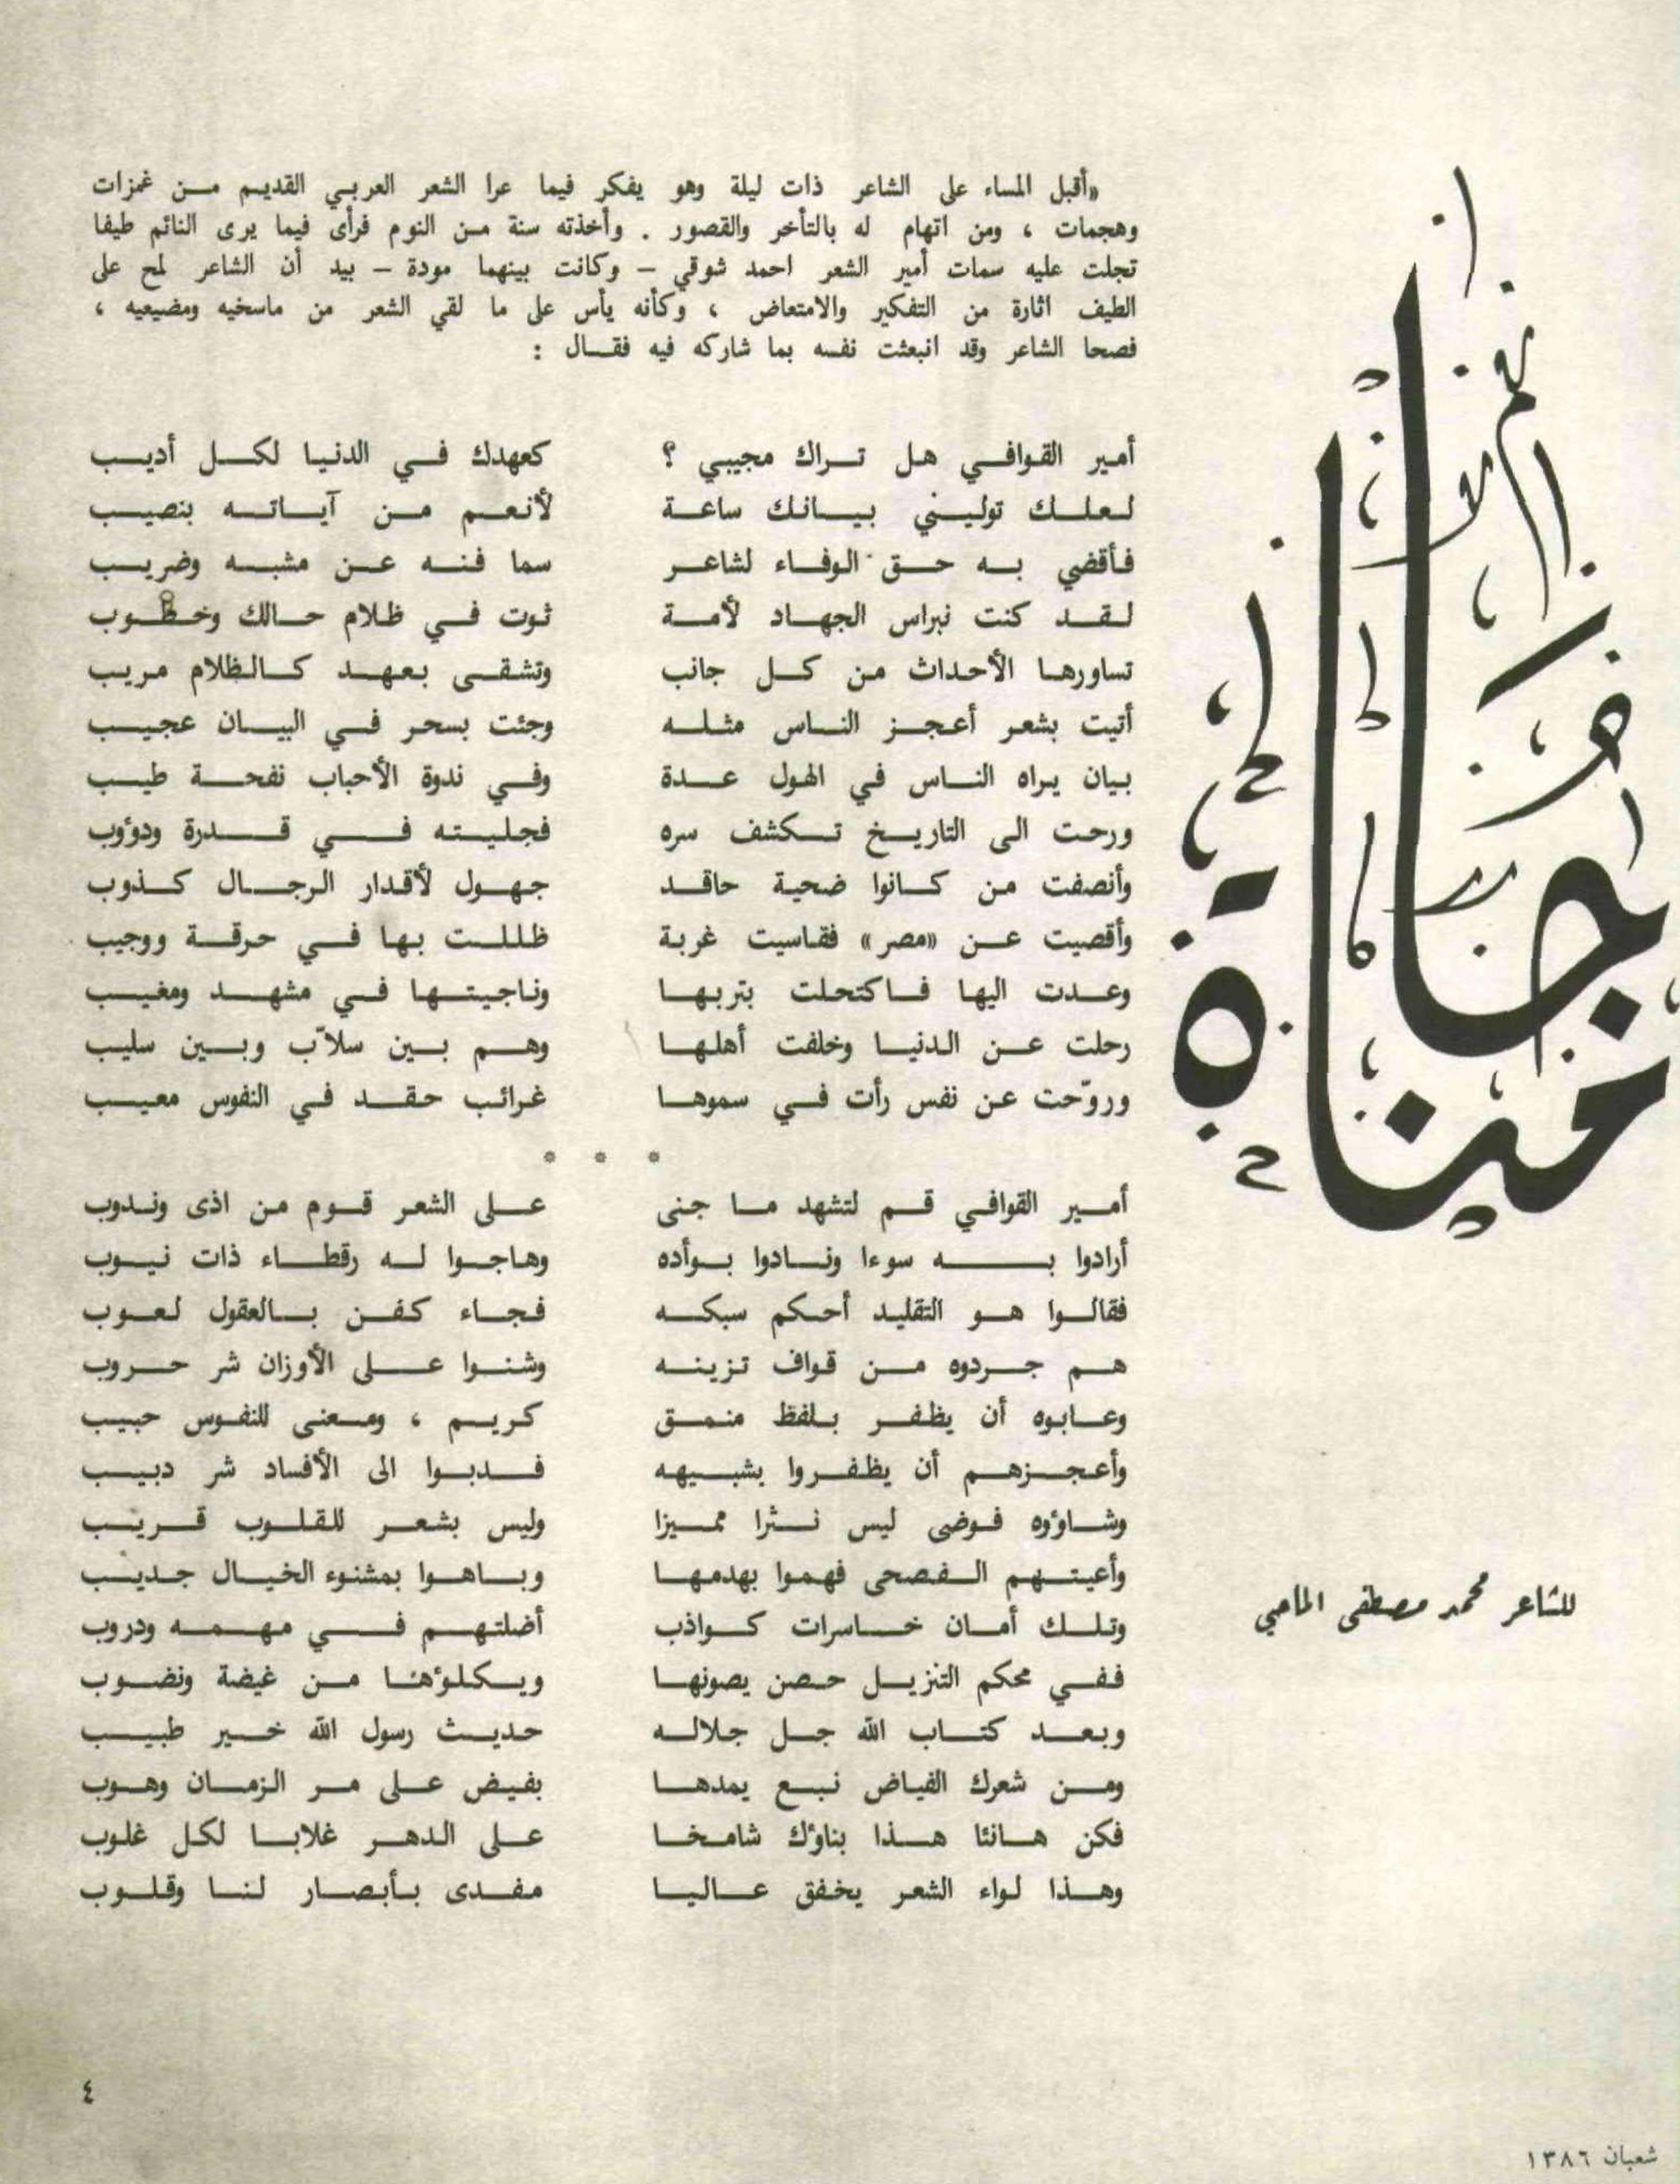 مناجاة
«أقبل المساء على الشاعر ذات ليلة وهو يفكر فيما عرا الشعر العربي القديم من غمزات
وهجمات ، ومن اتهام له بالتأخر والقصور . وأخذته سنة من النوم فرأى فيما يرى النائم طيفا
تجلت عليه سمات أمير الشعر احمد شوقي – وكانت بينهما مودة – بيد أن الشاعر لمح على
الطيف اثارة من التفكير والامتعاض ، وكأنه يأس على ما لقي الشعر من ماسخيه ومضيعيه ،
فصحا الشاعر وقد انبعثت نفسه بما شاركه فيه فقال :
أمير القوافي هل تراك مجيبي ؟ كعهدك في الدنيا لكل أديب
لعلك توليني بيانك ساعة لأنعم من آياته بنصيب
فأقضي به حق الوفاء لشاعر سما فنه عن مشبه وضريب
لقد كنت نبراس الجهاد لأمة ثوت في ظلام حالك وخطوب
تساورها الأحداث من كل جانب وتشقى بعهد كالظلام مريب
أتيت بشعر أعجز الناس مثله وجئت بسحر في البيان عجيب
بيان يراه الناس في الهول عدة وفي ندوة الأحباب نفحة طيب
ورحت الى التاريخ تكشف سره فجليته في قدرة ودؤوب
وأنصفت من كانوا ضحية حاقد جهول لأقدار الرجال كذوب
وأقصيت عن «مصر» فقاسيت غربة ظللت بها في حرقة ووجيب
وعدت اليها فاكتحلت بتربها وناجيتها في مشهد ومغيب
رحلت عن الدنيا وخلفت أهلها وهم بين سلاّب وبين سليب
وروّحت عن نفس رأت في سموها غرائب حقد في النفوس معيب
* * *
أمير القوافي قم لتشهد ما جنى على الشعر قوم من اذى وندوب
أرادوا به سوءا ونادوا بوأده وهاجوا له رقطاء ذات نيوب
فقالوا هو التقليد أحكم سبكه فجاء كفن بالعقول لعوب
هم جردوه من قواف تزينه وشنوا على الأوزان شر حروب
وعابوه أن يظفر بلفظ منمق كريم ، ومعنى للنفوس حبيب
وأعجزهم أن يظفروا بشبيهه فدبوا الى الأفساد شر دبيب
وشاؤوه فوضى ليس نثرا مميزا وليس بشعر للقلوب قريب
وأعيتهم الفصحى فهموا بهدمها وباهوا بمشنوء الخيال جديب
وتلك أمان خاسرات كواذب أضلتهم في مهمه ودروب
ففي محكم التنزيل حصن يصونها ويكلؤها من غيضة ونضوب
وبعد كتاب الله جل جلاله حديث رسول الله خير طبيب
ومن شعرك الفياض نبع يمدها بفيض على مر الزمان وهوب
فكن هانئا هذا بناؤك شامخا على الدهر غلابا لكل غلوب
وهذا لواء الشعر يخفق عاليا مفدى بأبصار لنا وقلوب
للشاعر محمد مصطفى الماحي
٤
شعبان ١٣٨٦